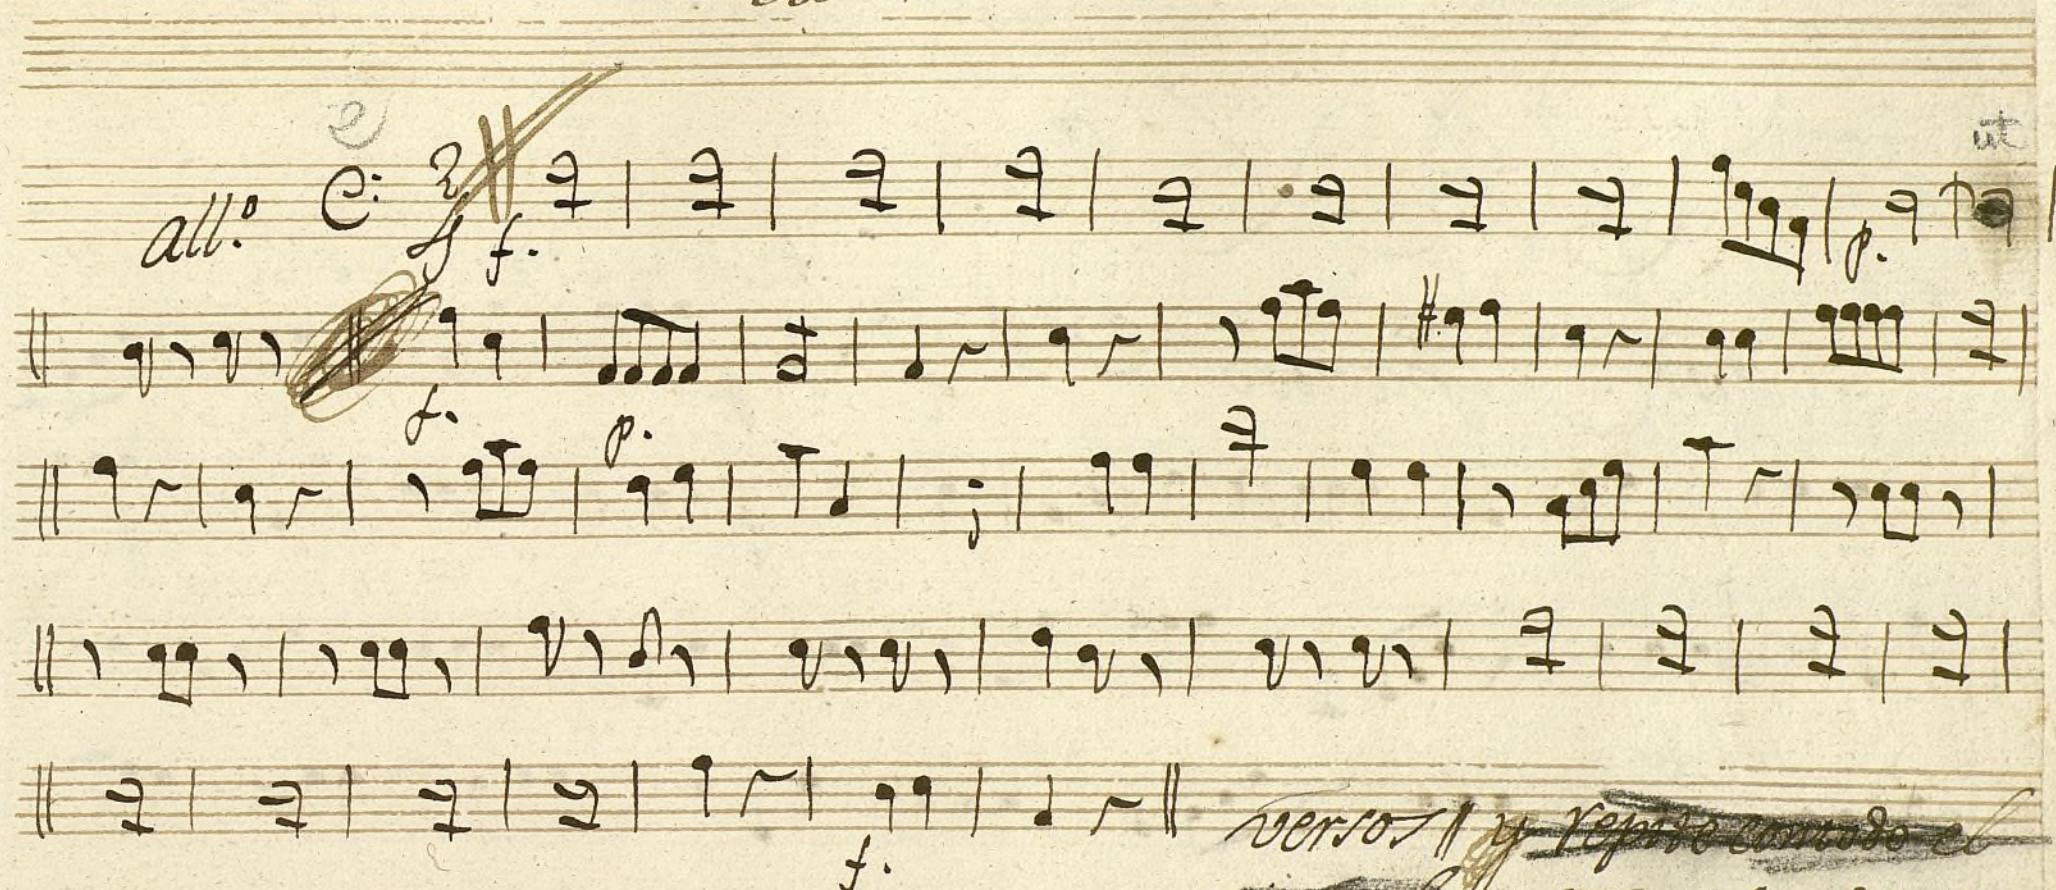 ut
all.º 2 4 f. p.
f. p.
f.
versos || y repite con todo el